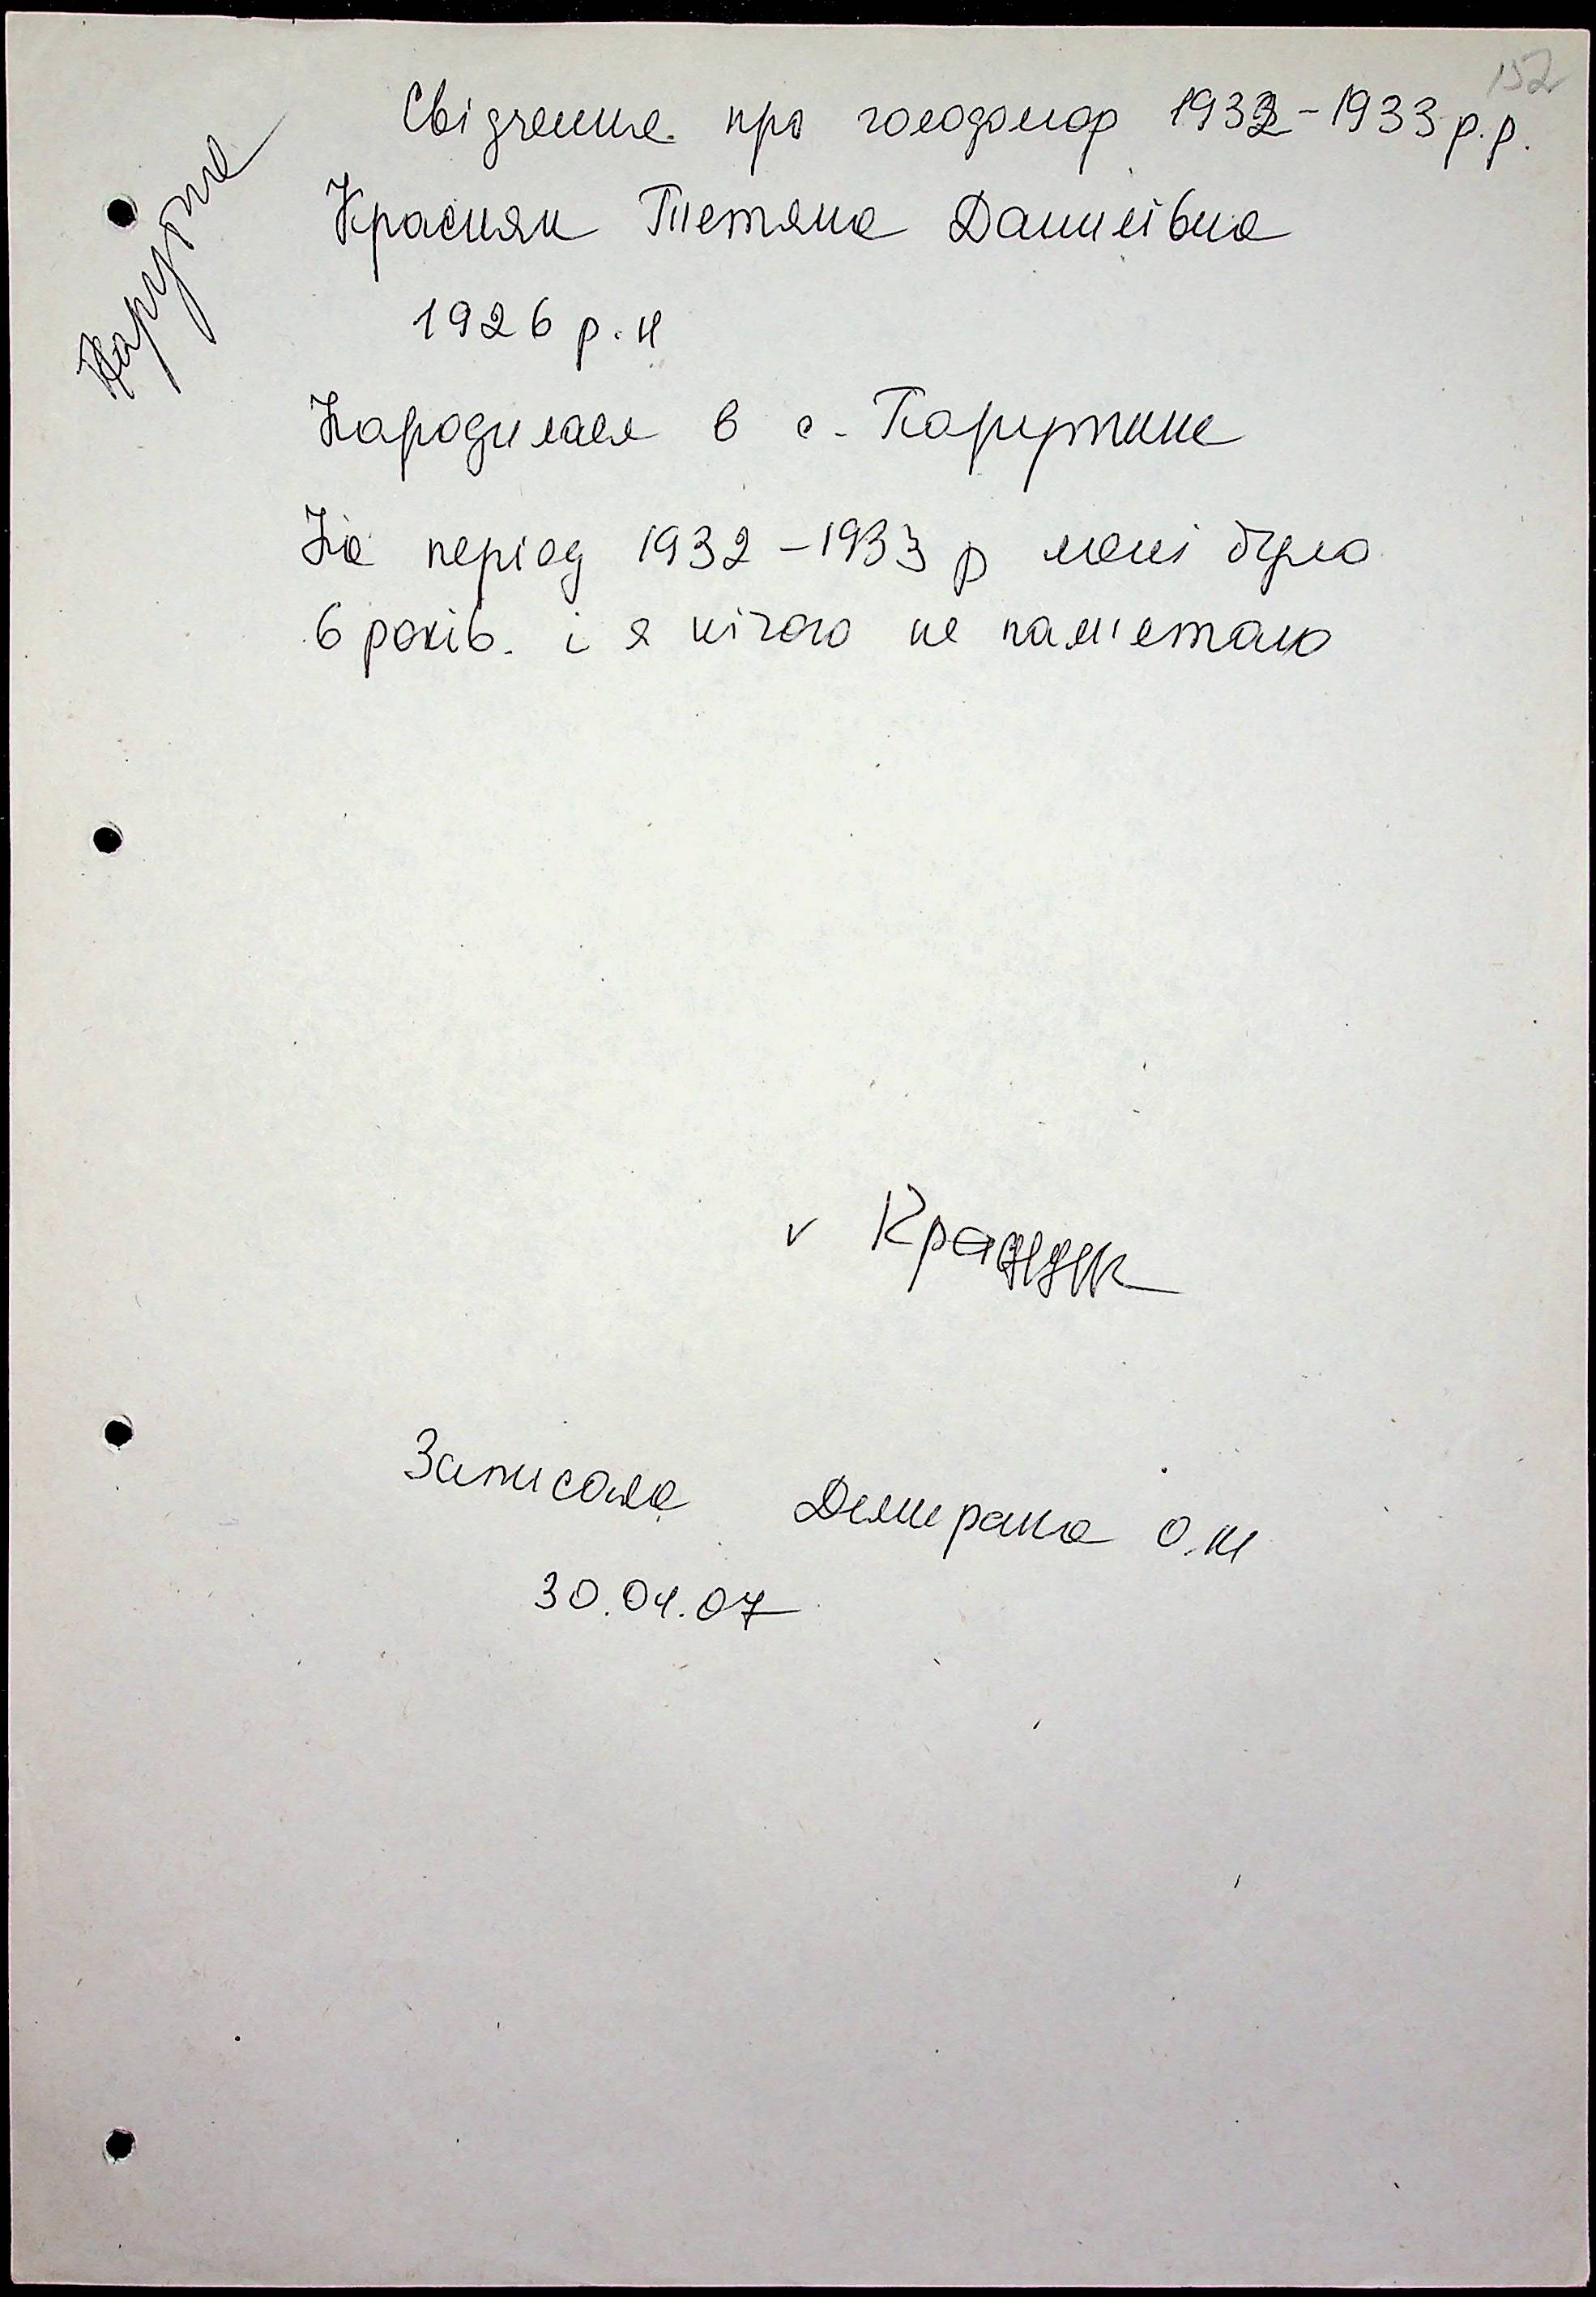 152
Свідчення про голодомор 1932-1933 р.р.
Парутине
Красняк Тетяна Данилівна
1926 р.н
Народилася в с. Парутине
На період 1932-1933 р мені було
6 років. і я нічого не пам'ятаю
v
Записала О.М
30.04.07